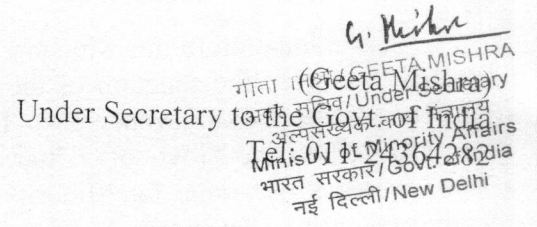 G. Mishra
(Geeta Mishra)
Under Secretary to the Govt. of India
Tel: 011-24364282
गीता मिश्रा/GEETA MISHRA
अवर सचिव/Under Secretary
अल्पसंख्यक कार्य मंत्रालय
Ministry of Minority Affairs
भारत सरकार/Govt. of India
नई दिल्ली/New Delhi